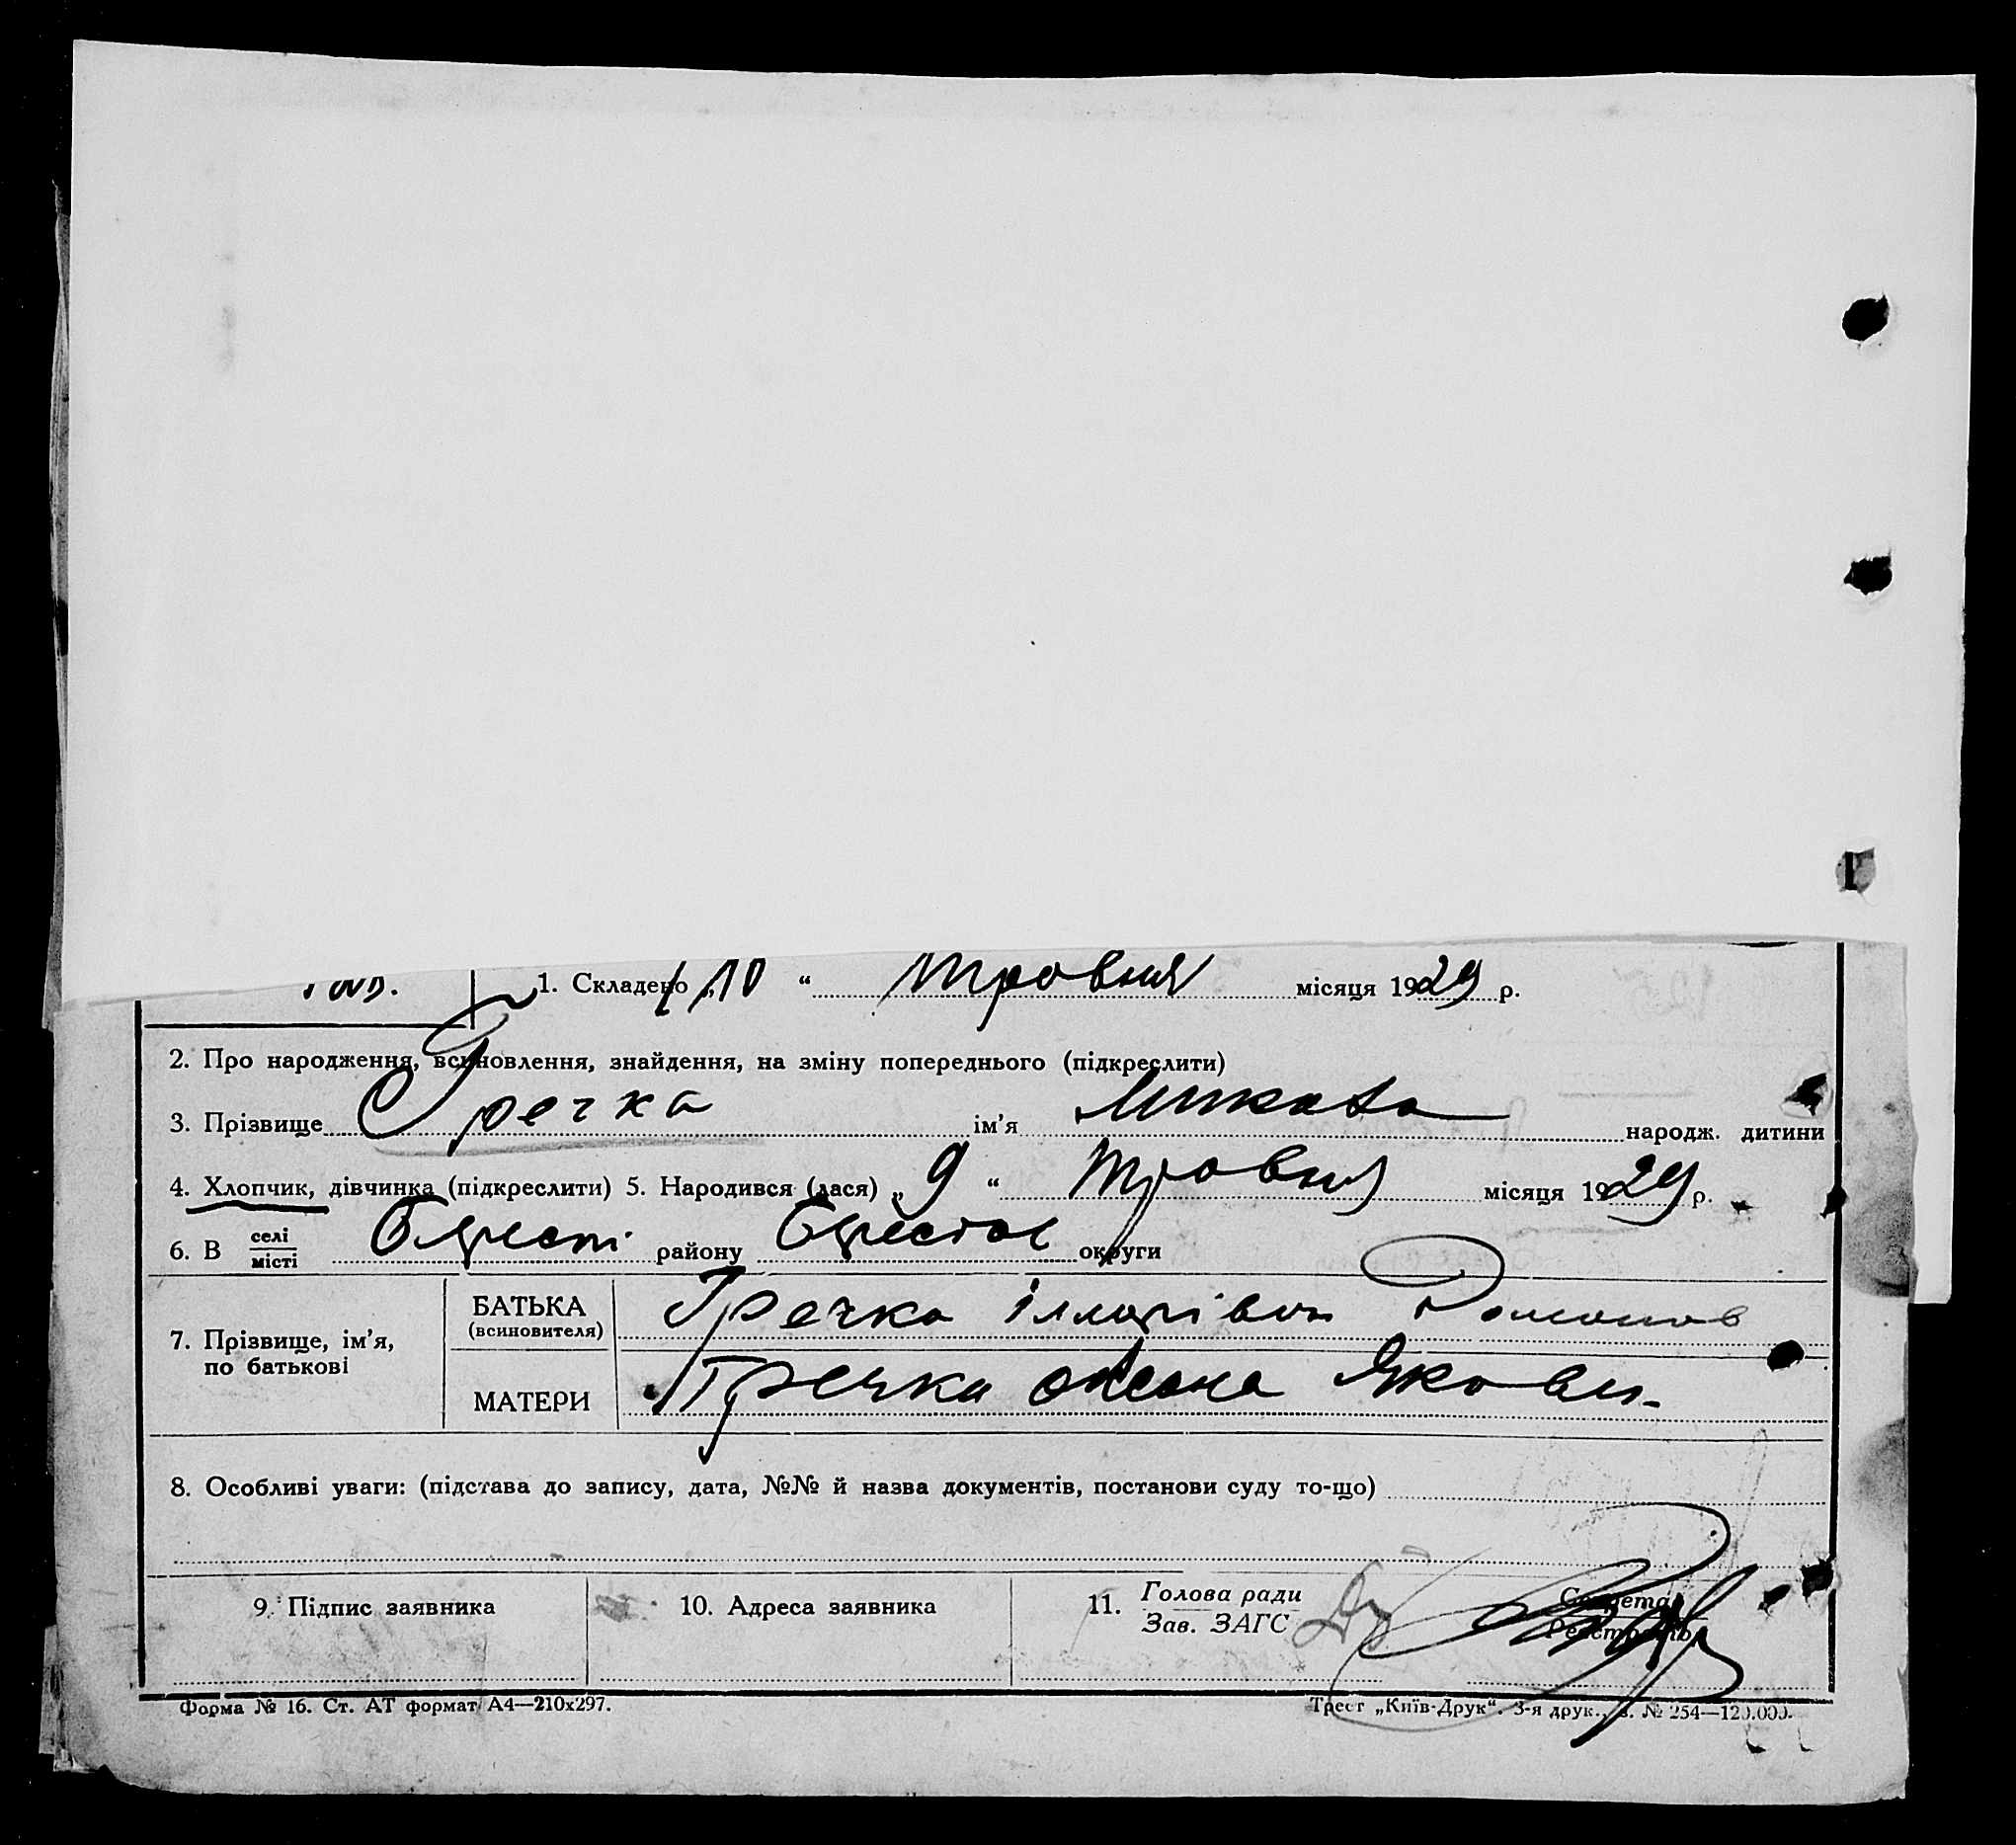 1. Складено „10“ травня місяця 1929 р.
2. Про народження, всиновлення, знайдення, на зміну попереднього (підкреслити)
3. Прізвище Гречка ім’я Микола народж. дитини
4. Хлопчик, дівчинка (підкреслити) 5. Народився (лася) „9“ травня місяця 1929 р.
6. В селі
місті району округи
7. Прізвище, ім’я,
по батькові
БАТЬКА
(всиновителя)
Гречка Романов
МАТЕРИ
Гречка Яковл.
8. Особливі уваги: (підстава до запису, дата, №№ й назва документів, постанови суду то-що)
9. Підпис заявника
10. Адреса заявника
11. Голова ради
Зав. ЗАГС
Секретар
Реєстратор
Форма № 16. Ст. АТ формат А4—210х297.
Трест „Київ-Друк“. 3-я друк., з. № 254—120.000.